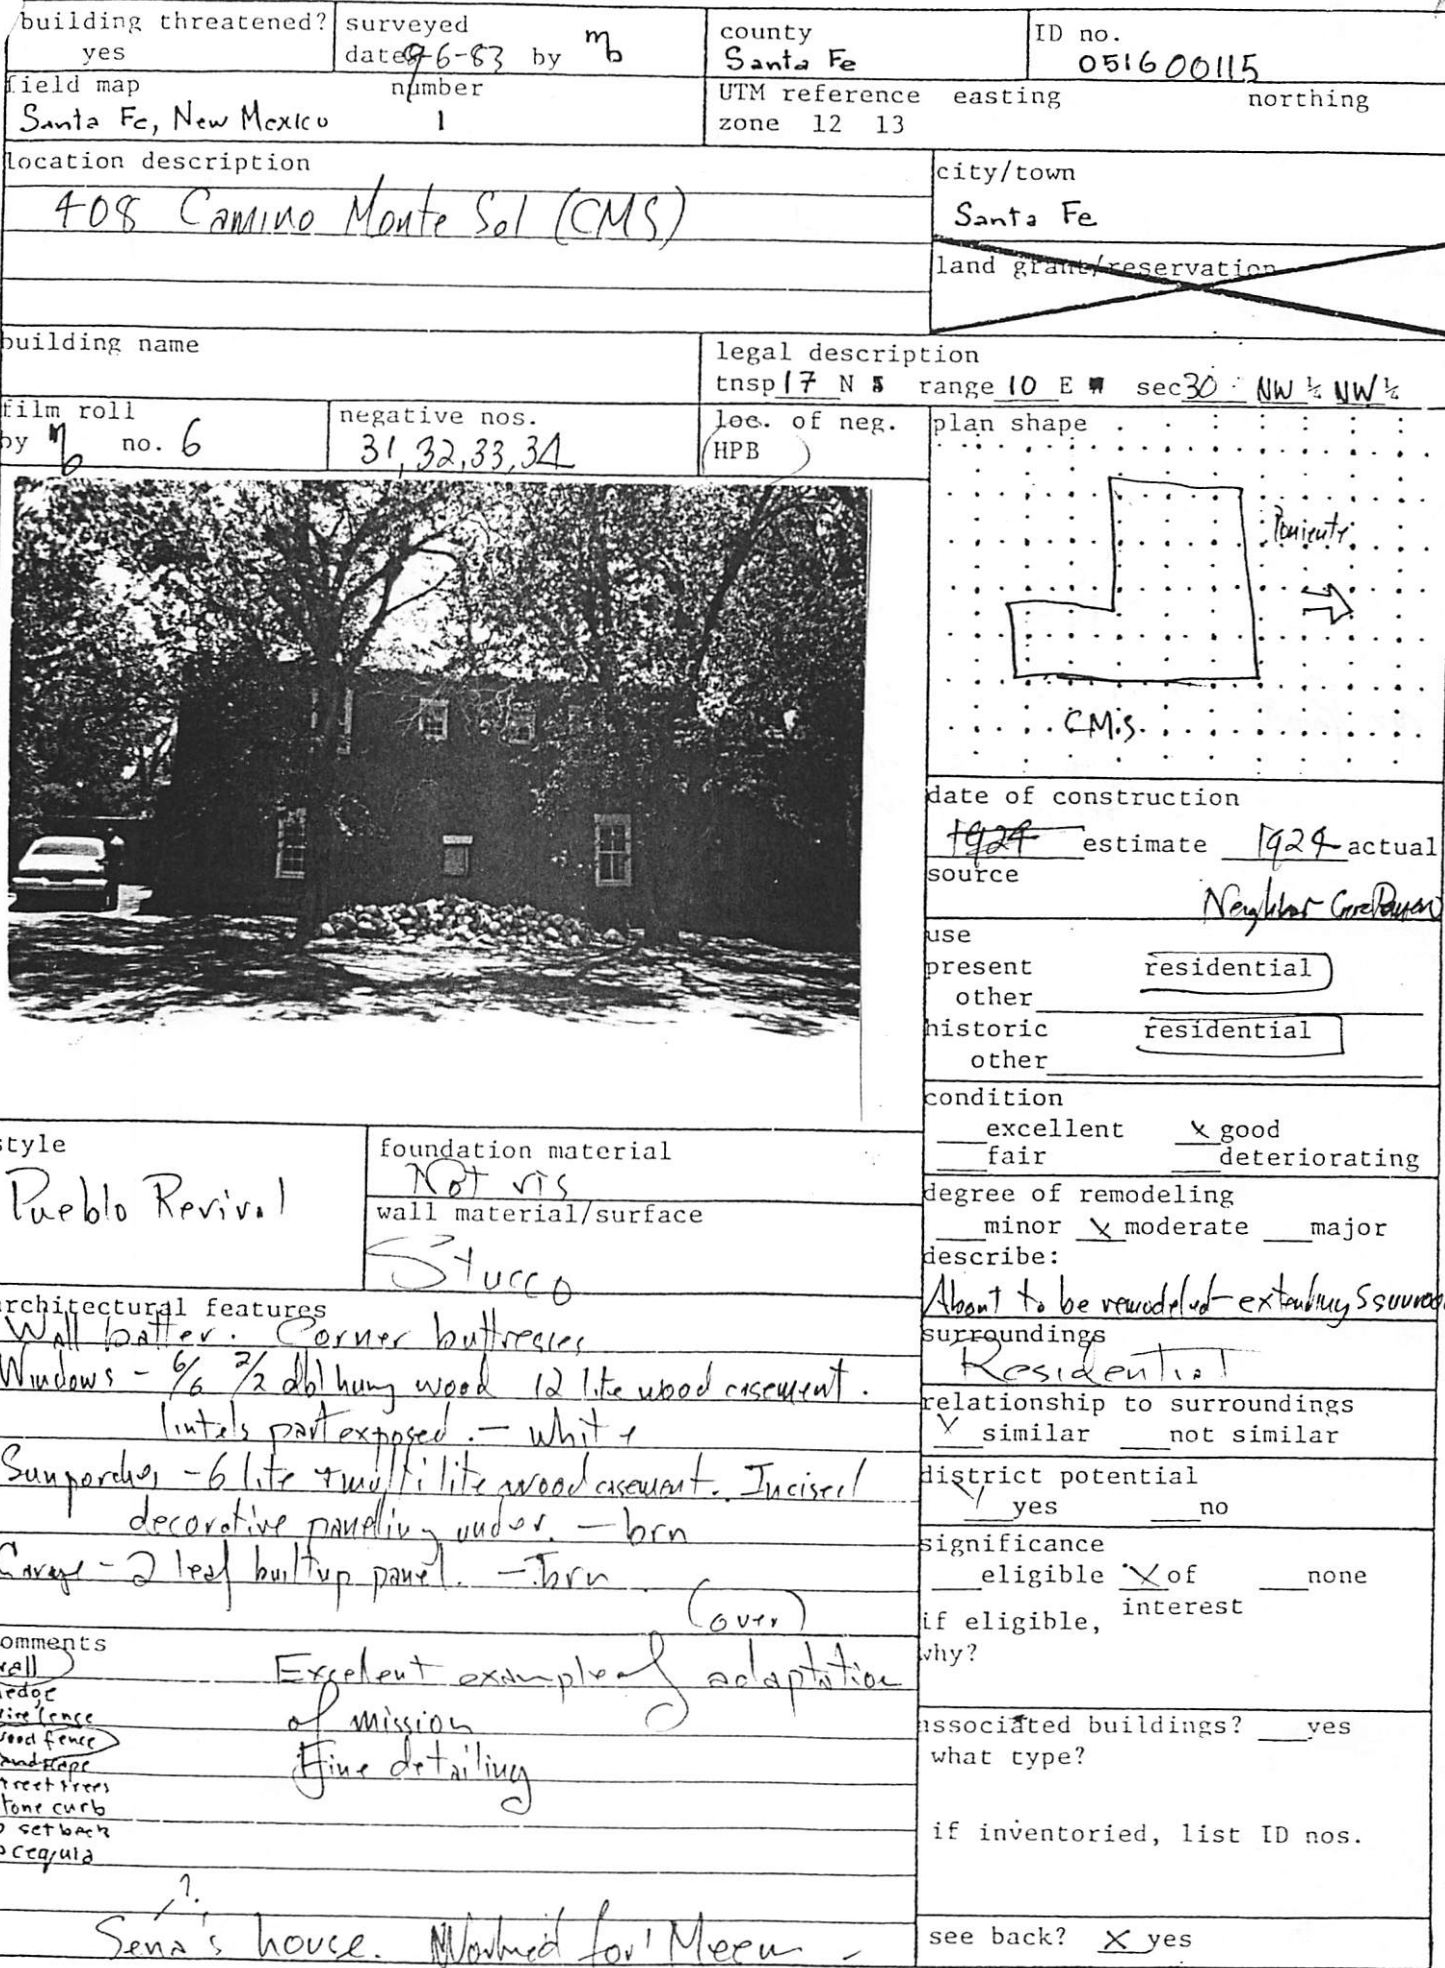 building threatened?
yes
surveyed
date 9-6-83 by mb
county
Santa Fe
ID no.
051600115
field map number
Santa Fe, New Mexico 1
UTM reference easting northing
zone 12 13
location description
408 Camino Monte Sol (CMS)
city/town
Santa Fe
land grant/reservation
building name
legal description
tnsp 17 N S range 10 E W sec 30 NW ¼ NW ¼
film roll
by mb no. 6
negative nos.
31, 32, 33, 34
loc. of neg.
HPB
plan shape
Poniente
CMS
date of construction
1924 estimate 1924 actual
source
Neighbor
use
present residential
other
historic residential
other
condition
excellent x good
fair deteriorating
style
Pueblo Revival
foundation material
Not vis
wall material/surface
Stucco
degree of remodeling
minor x moderate major
describe:
About to be remodeled - extending S
surroundings
Residential
relationship to surroundings
x similar not similar
district potential
yes no
significance
eligible x of interest none
if eligible,
why?
associated buildings? yes
what type?
if inventoried, list ID nos.
see back? x yes
architectural features
Wall batter. Corner buttresses
Windows - 6/6 2/2 dbl hung wood 12 lite wood casement.
lintels part exposed. - white
Sunporches - 6 lite + multi lite wood casement. Incised
decorative paneling under. - brn
Garage - 2 leaf builtup panel. - brn
(over)
comments
wall
hedge
wire fence
wood fence
landscape
street trees
stone curb
no setback
acequia
Excellent example of adaptation
of mission
Fine detailing
?
Sena's house. Worked for Meem -